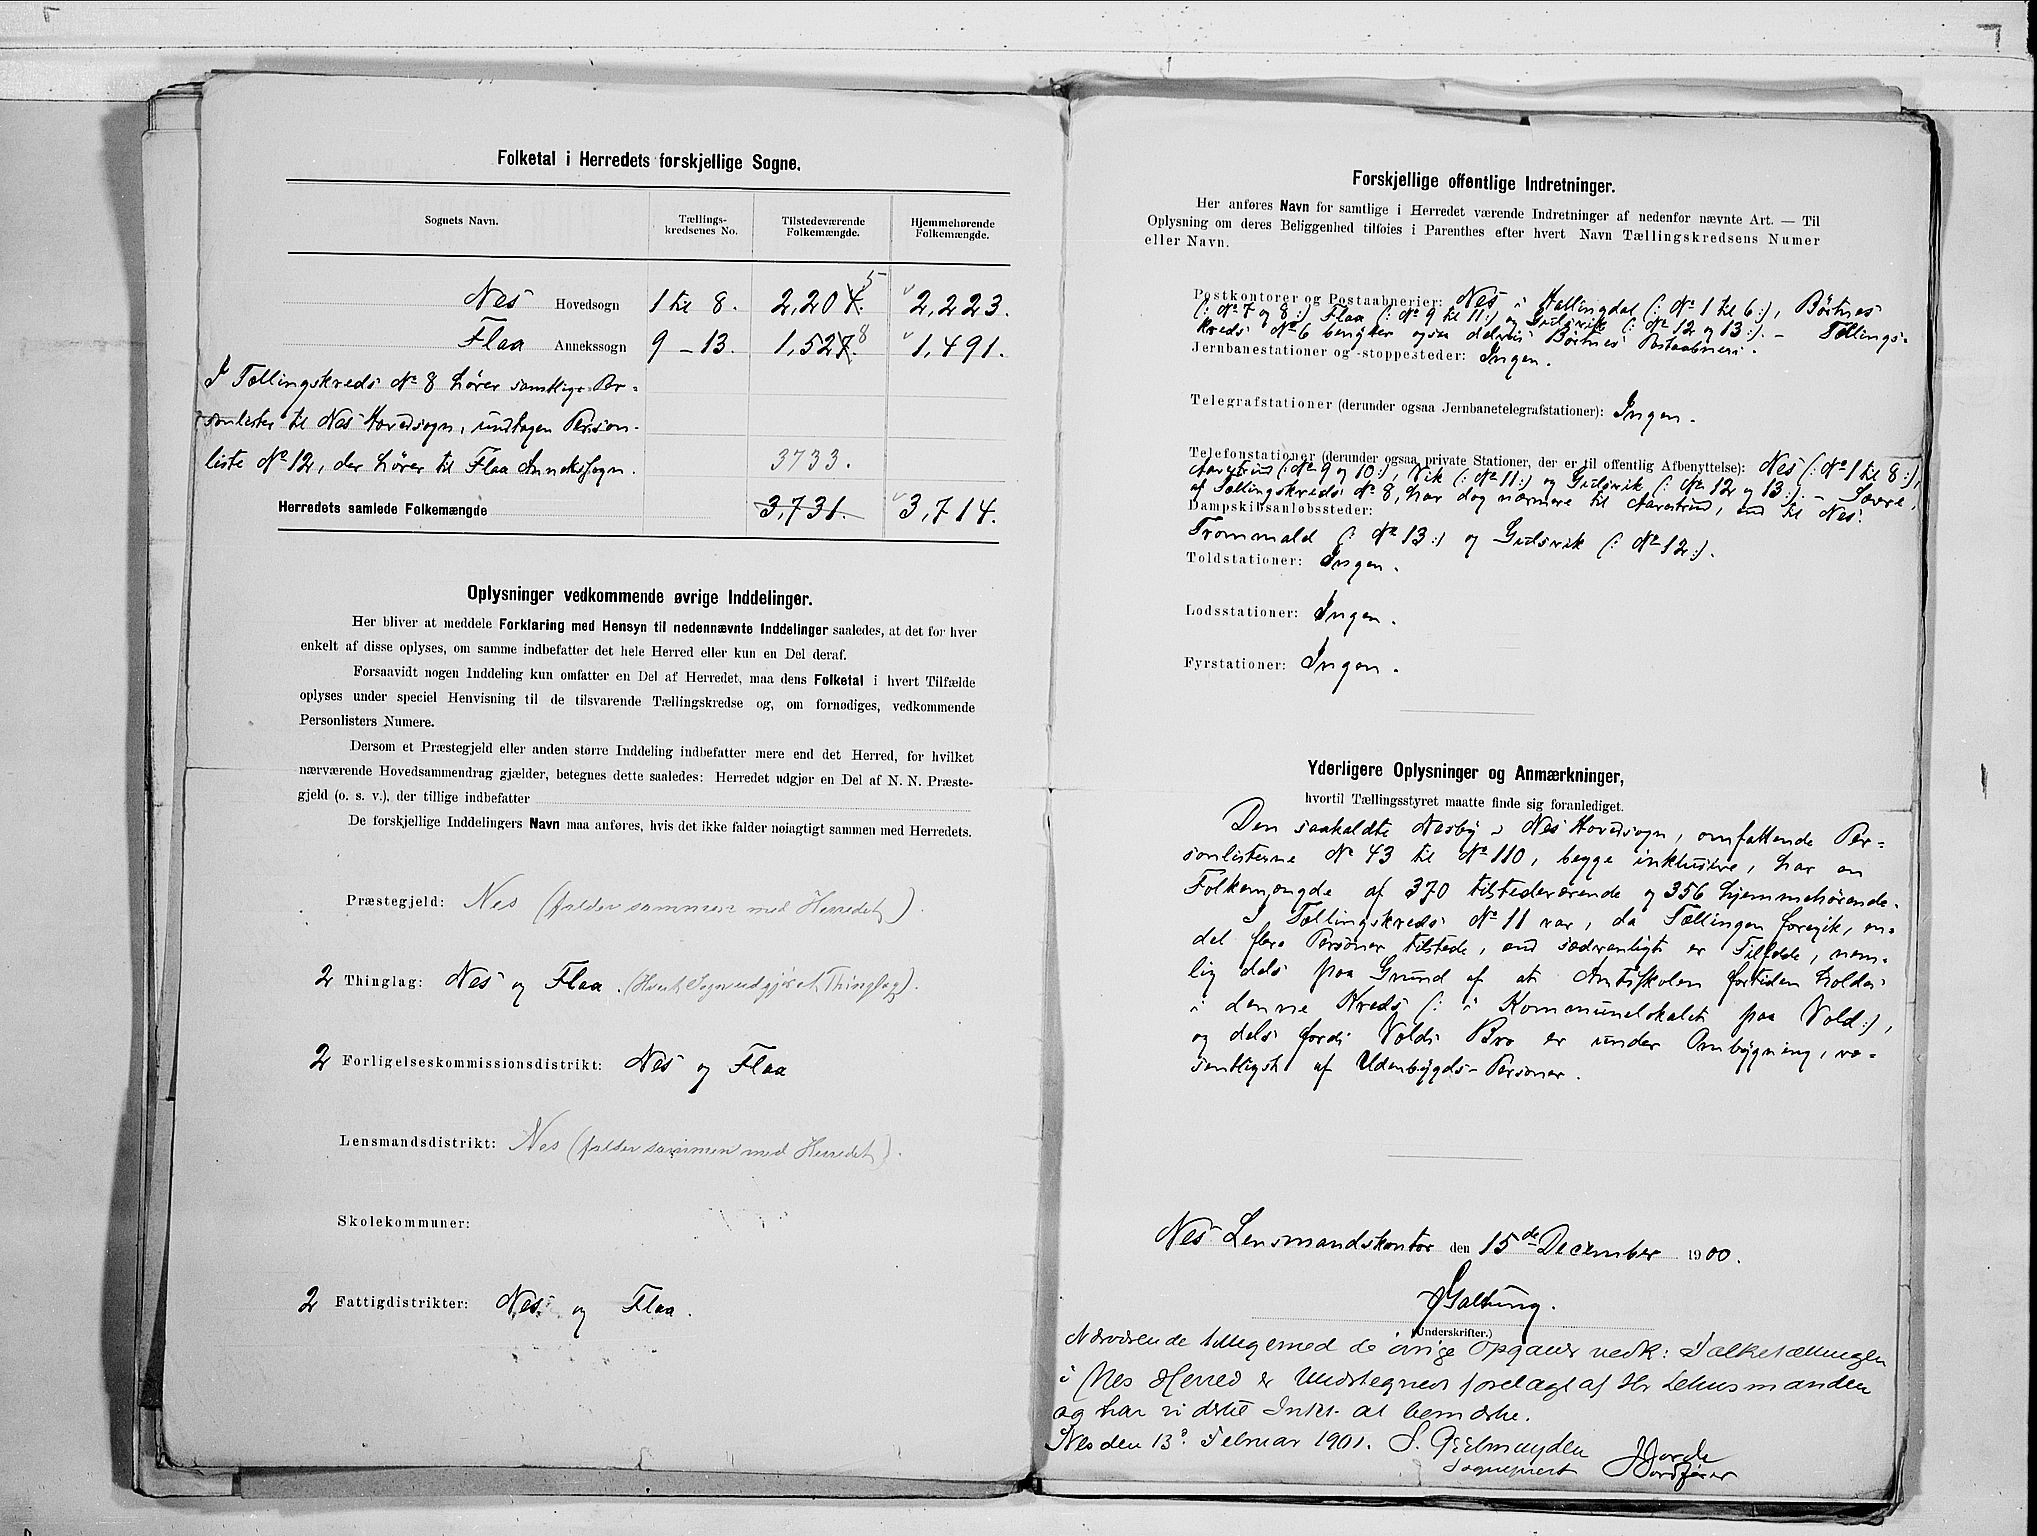 Folketal i Herredets forskjellige Sogne.
Sognets Navn. Tællings-kredsenes No. Tilstedeværende Folkemængde. Hjemmehørende Folkemængde.
Nes Hovedsogn 1 til 8. 2,204. 5 2,223.
Flaa Annekssogn 9 – 13. 1,527. 8 1,491.
I Tællingskreds No 8 hører samtlige Per-
sonlister til Nes Hovedsogn, undtagen Person-
liste No 12, der hører til Flaa Annekssogn.
3733.
Herredets samlede Folkemængde 3,731. 3,714.
Oplysninger vedkommende øvrige Inddelinger.
Her bliver at meddele Forklaring med Hensyn til nedennævnte Inddelinger saaledes, at det for hver
enkelt af disse oplyses, om samme indbefatter det hele Herred eller kun en Del deraf.
Forsaavidt nogen Inddeling kun omfatter en Del af Herredet, maa dens Folketal i hvert Tilfælde
oplyses under speciel Henvisning til de tilsvarende Tællingskredse og, om fornødiges, vedkommende
Personlisters Numere.
Dersom et Præstegjeld eller anden større Inddeling indbefatter mere end det Herred, for hvilket
nærværende Hovedsammendrag gjælder, betegnes dette saaledes: Herredet udgjør en Del af N. N. Præste-
gjeld (o. s. v.), der tillige indbefatter
De forskjellige Inddelingers Navn maa anføres, hvis det ikke falder nøiagtigt sammen med Herredets.
Præstegjeld: Nes (falder sammen med Herredet).
2 Thinglag: Nes og Flaa. (Hvert Sogn udgjør et Thinglag).
2 Forligelseskommissionsdistrikt: Nes og Flaa
Lensmandsdistrikt: Nes (falder sammen med Herredet).
Skolekommuner:
2 Fattigdistrikter: Nes og Flaa.
Forskjellige offentlige Indretninger.
Her anføres Navn for samtlige i Herredet værende Indretninger af nedenfor nævnte Art. — Til
Oplysning om deres Beliggenhed tilføies i Parenthes efter hvert Navn Tællingskredsens Numer
eller Navn.
Postkontorer og Postaabnerier: Nes i Hallingdal (: No 1 til 6:), Börtnes
(: No 7 og 8:) Flaa (: No 9 til 11:) og Gulsvik (: No 12 og 13:). – Tællings-
kreds No 6 benytter ogsaa delvis Börtnes Postaabneri.
Jernbanestationer og -stoppesteder: Ingen.
Telegrafstationer (derunder ogsaa Jernbanetelegrafstationer): Ingen.
Telefonstationer (derunder ogsaa private Stationer, der er til offentlig Afbenyttelse): Nes (: No 1 til 8:),
Aavestrud (: No 9 og 10:), Vik (: No 11:) og Gulsvik (: No 12 og 13:). –
af Tællingskreds No 8, har dog nærmere til Aavestrud, end til Nes.
Dampskibsanløbssteder:
Trommald (: No 13:) og Gulsvik (: No 12:).
Toldstationer: Ingen.
Lodsstationer: Ingen.
Fyrstationer: Ingen.
Yderligere Oplysninger og Anmærkninger,
hvortil Tællingsstyret maatte finde sig foranlediget.
Den saakaldte Nesby i Nes Hovedsogn, omfattende Per-
sonlisterne No 43 til No 110, begge inklusive, har en
Folkemængde af 370 tilstedeværende og 356 hjemmehörende.
I Tællingskreds No 11 var, da Tællingen foregik, en-
del flere Personer tilstede, end sædvanligt er Tilfælde, nem-
lig dels paa Grund af at Amtsskolen fortiden holdes
i denne Kreds (: i Kommunelokalet paa Vold:),
og dels fordi Volds Bro er under Ombygning, væ-
sentligst af Udenbygds-Personer.
Nes Lensmandskontor den 15de December 1900.
Galtung.
(Underskrifter.)
Nærværende tilligemed de övrige Opgaver vedk: Folketællingen
i Nes Herred er Undertegnede forelagt af Hr Lehnsmanden
og har vi dertil Intet at bemærke.
Nes den 13de Februar 1901. S. Gjelmuyden
Sogneprest
Ordfører